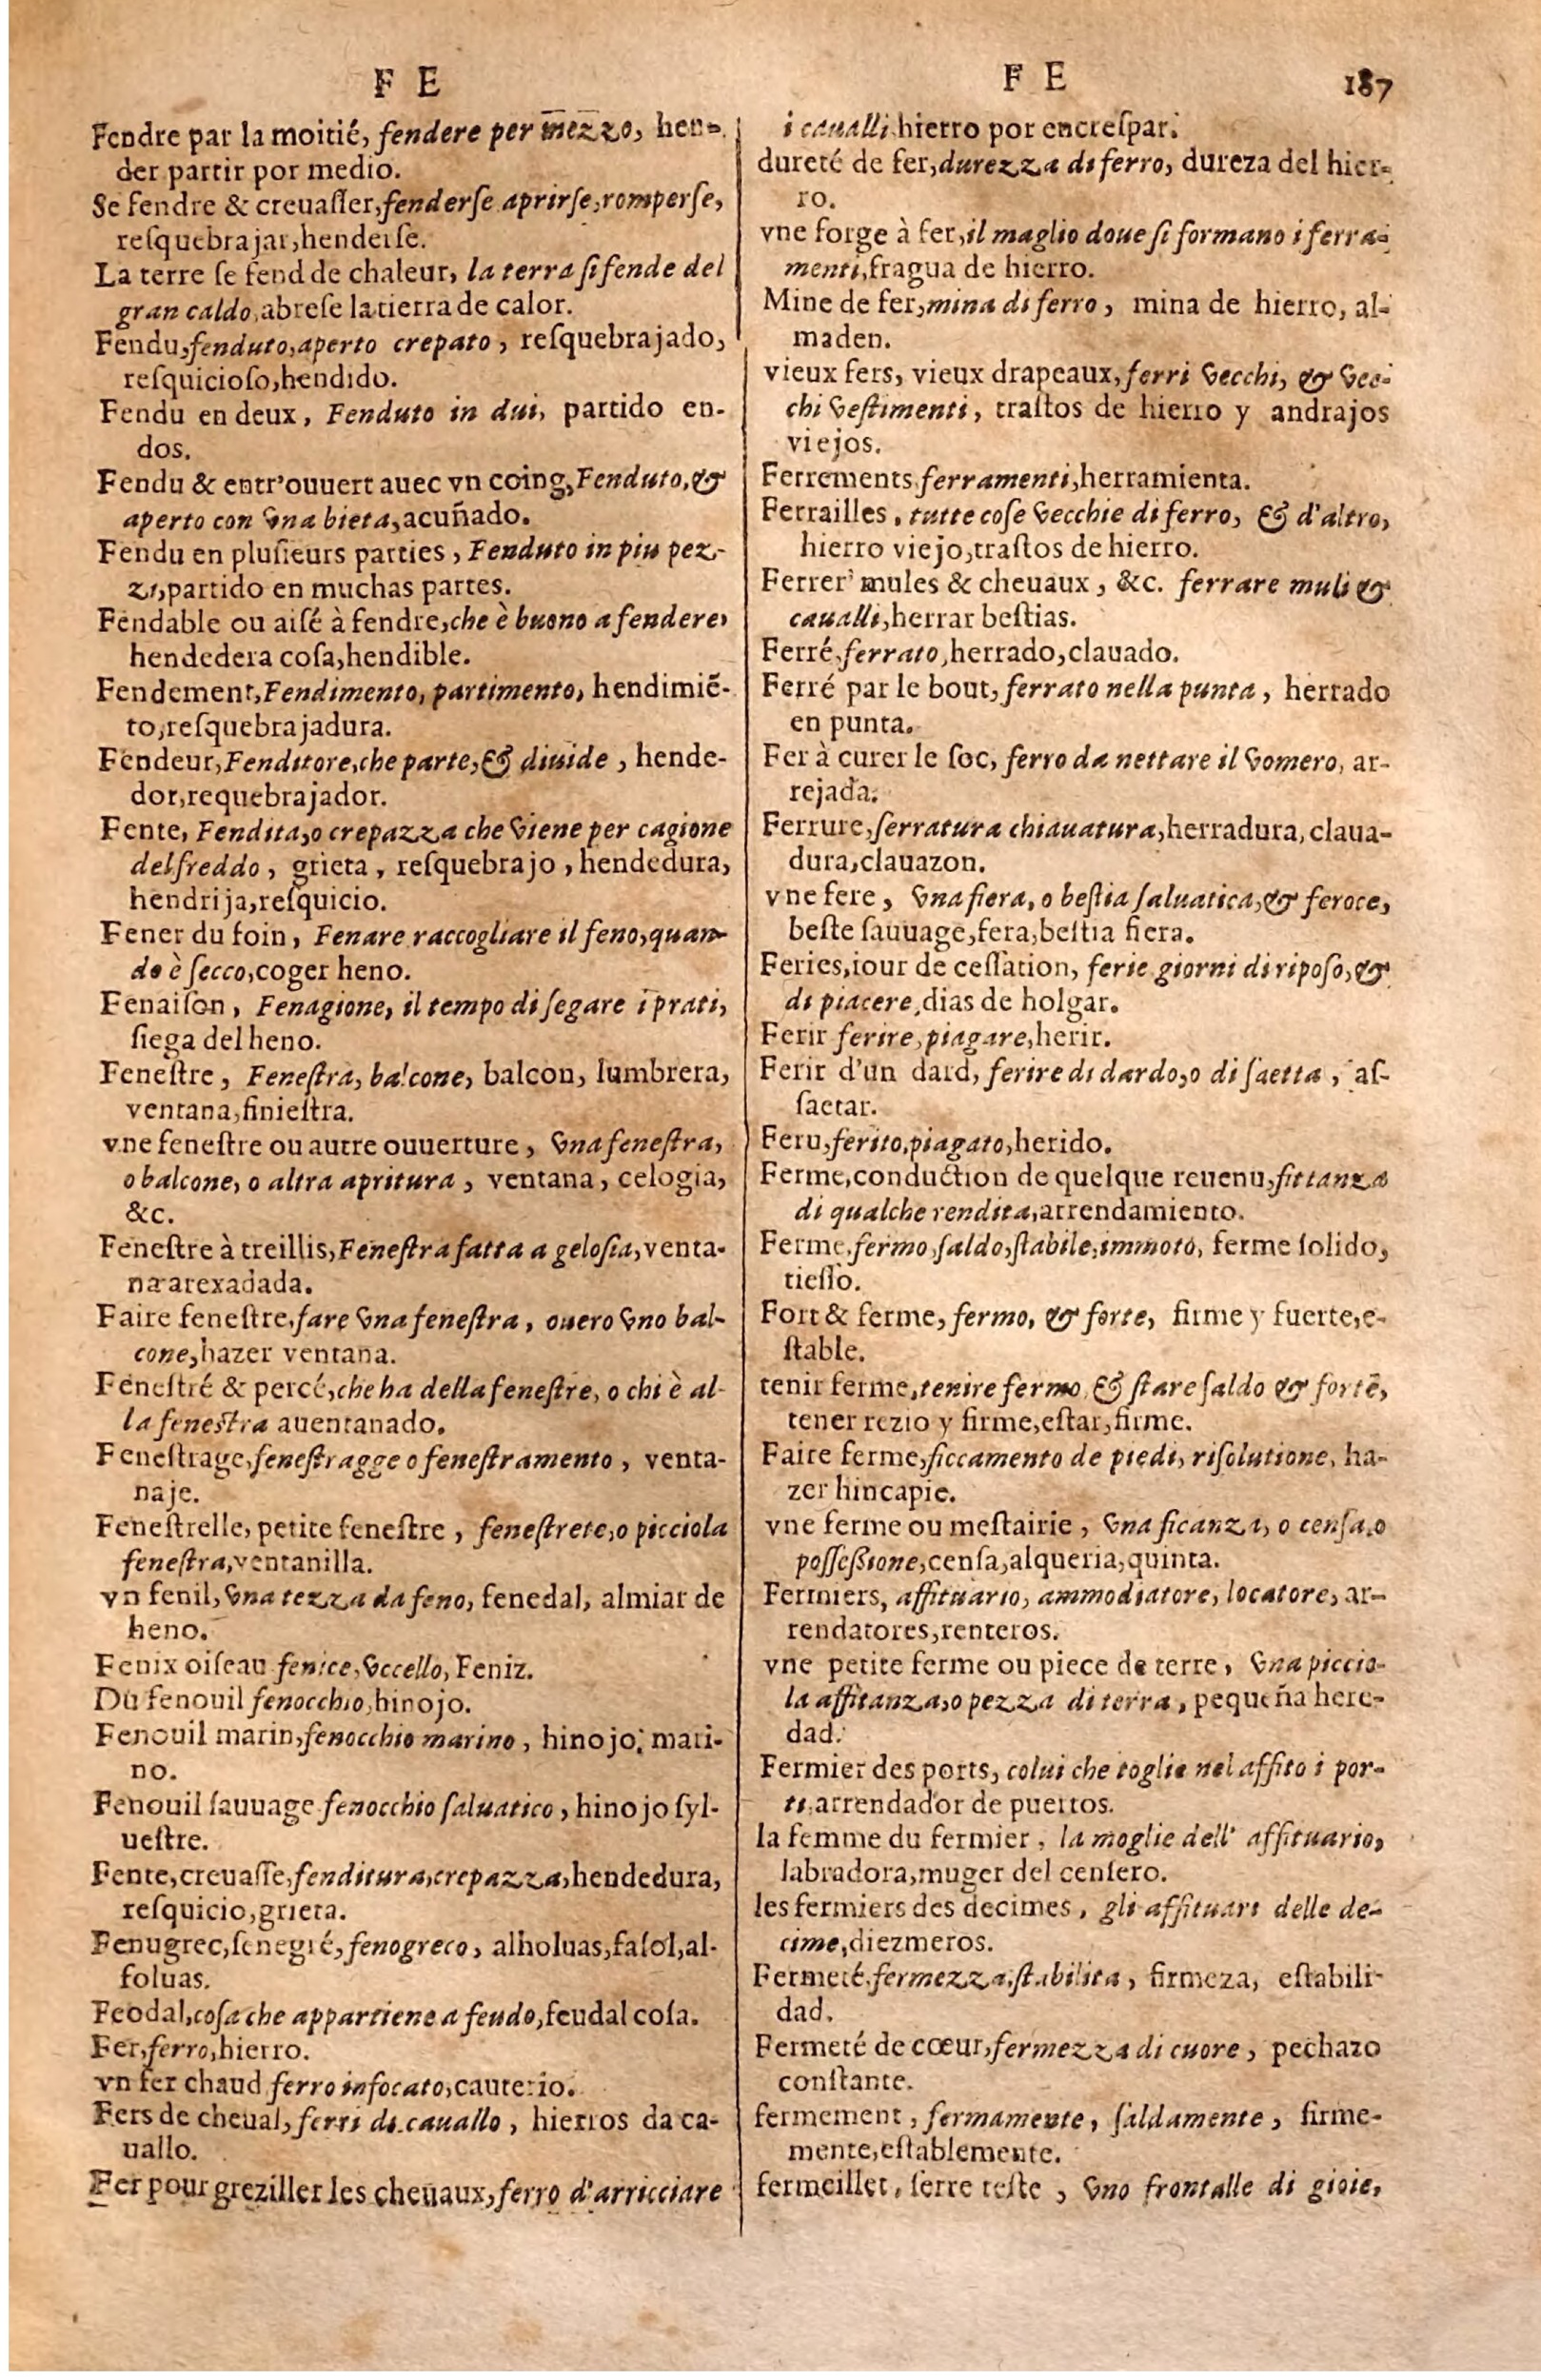 F E
Fendre par la moitié, fendere per mezzo, hen-
der partir por medio.
Se fendre & creuaſſer, fenderſe aprirſe, romperſe,
reſquebrajar, henderſe.
La terre ſe fend de chaleur, la terra ſi fende del
gran caldo, abreſe la tierra de calor.
Fendu, fenduto, aperto crepato, reſquebrajado,
reſquicioſo, hendido.
Fendu en deux, Fenduto in dui, partido en-
dos.
Fendu & entr'ouuert auec vn coing, Fenduto, &
aperto con vna bieta, acuñado.
Fendu en pluſieurs parties, Fenduto in piu pez-
zi, partido en muchas partes.
Fendable ou aiſé à fendre, che è buono a fendere,
hendedera coſa, hendible.
Fendement, Fendimento, partimento, hendimiẽ-
to, reſquebrajadura.
Fendeur, Fenditore, che parte, & diuide, hende-
dor, requebrajador.
Fente, Fendita, o crepazza che viene per cagione
del freddo, grieta, reſquebrajo, hendedura,
hendrija, reſquicio.
Fener du foin, Fenare raccogliare il feno, quan-
do è ſecco, coger heno.
Fenaiſon, Fenagione, il tempo di ſegare i prati,
ſiega del heno.
Feneſtre, Feneſtra, balcone, balcon, lumbrera,
ventana, finieſtra.
vne feneſtre ou autre ouuerture, vna feneſtra,
o balcone, o altra apritura, ventana, celogia,
&c.
Feneſtre à treillis, Feneſtra fatta a geloſia, venta-
na arexadada.
Faire feneſtre, fare vna feneſtra, ouero vno bal-
cone, hazer ventana.
Feneſtré & percé, che ha della feneſtre, o chi è al-
la feneſtra auentanado.
Feneſtrage, feneſtragge o feneſtramento, venta-
naje.
Feneſtrelle, petite feneſtre, feneſtrete, o picciola
feneſtra, ventanilla.
vn fenil, vna tezza da feno, fenedal, almiar de
heno.
Fenix oiſeau fenice, vccello, Feniz.
Du fenouil fenocchio, hinojo.
Fenouil marin, fenocchio marino, hinojo, mari-
no.
Fenouil ſauuage fenocchio ſaluatico, hinojo ſyl-
ueſtre.
Fente, creuaſſe, fenditura, crepazza, hendedura,
reſquicio, grieta.
Fenugrec, ſenegré, fenogreco, alholuas, faſol, al-
foluas.
Feodal, coſa che appartiene a feudo, feudal coſa.
Fer, ferro, hierro.
vn fer chaud ferro infocato, cauterio.
Fers de cheual, ferri di cauallo, hierros da ca-
uallo.
Fer pour greziller les cheuaux, ferro d'arricciare
F E 187
i caualli hierro por encreſpar.
dureté de fer, durezza di ferro, dureza del hier-
ro.
vne forge à fer, il maglio doue ſi formano i ferra-
menti, fragua de hierro.
Mine de fer, mina di ferro, mina de hierro, al-
maden.
vieux fers, vieux drapeaux, ferri vecchi, & vec-
chi veſtimenti, traſtos de hierro y andrajos
viejos.
Ferrements ferramenti, herramienta.
Ferrailles, tutte coſe vecchie di ferro, & d'altro,
hierro viejo, traſtos de hierro.
Ferrer mules & cheuaux, &c. ferrare muli &
caualli, herrar beſtias.
Ferré, ferrato, herrado, clauado.
Ferré par le bout, ferrato nella punta, herrado
en punta.
Fer à curer le ſoc, ferro da nettare il vomero, ar-
rejada.
Ferrure, ſerratura chiauatura, herradura, claua-
dura, clauazon.
vne fere, vna fiera, o beſtia ſaluatica, & feroce,
beſte ſauuage, fera, beſtia fiera.
Feries, iour de ceſſation, ferie giorni di ripoſo, &
di piacere, dias de holgar.
Ferir ferire, piagare, herir.
Ferir d'un dard, ferire di dardo, o di ſaetta, aſ-
ſaetar.
Feru, ferito, piagato, herido.
Ferme, conduction de quelque reuenu, fittanza
di qualche rendita, arrendamiento.
Ferme, fermo, ſaldo, ſtabile, immoto, ferme ſolido,
tieſſo.
Fort & ferme, fermo, & forte, firme y fuerte, e-
ſtable.
tenir ferme, tenire fermo, & ſtare ſaldo & forte,
tener rezio y firme, eſtar, firme.
Faire ferme, ficcamento de piedi, riſolutione, ha-
zer hincapie.
vne ferme ou meſtairie, vna ficanza, o cenſa, o
poſſeßione, cenſa, alqueria, quinta.
Fermiers, affituario, ammodiatore, locatore, ar-
rendatores, renteros.
vne petite ferme ou piece de terre, vna piccio-
la affitanza, o pezza di terra, pequeña here-
dad.
Fermier des ports, colui che toglie nel affito i por-
ti, arrendador de puertos.
la femme du fermier, la moglie dell' affituario,
labradora, muger del cenſero.
les fermiers des decimes, gli affituari delle de-
cime, diezmeros.
Fermeté, fermezza, ſtabilita, firmeza, eſtabili-
dad.
Fermeté de cœur, fermezza di cuore, pechazo
conſtante.
fermement, fermamente, ſaldamente, firme-
mente, eſtablemente.
fermeillet, ſerre teſte, vno frontalle di gioie,